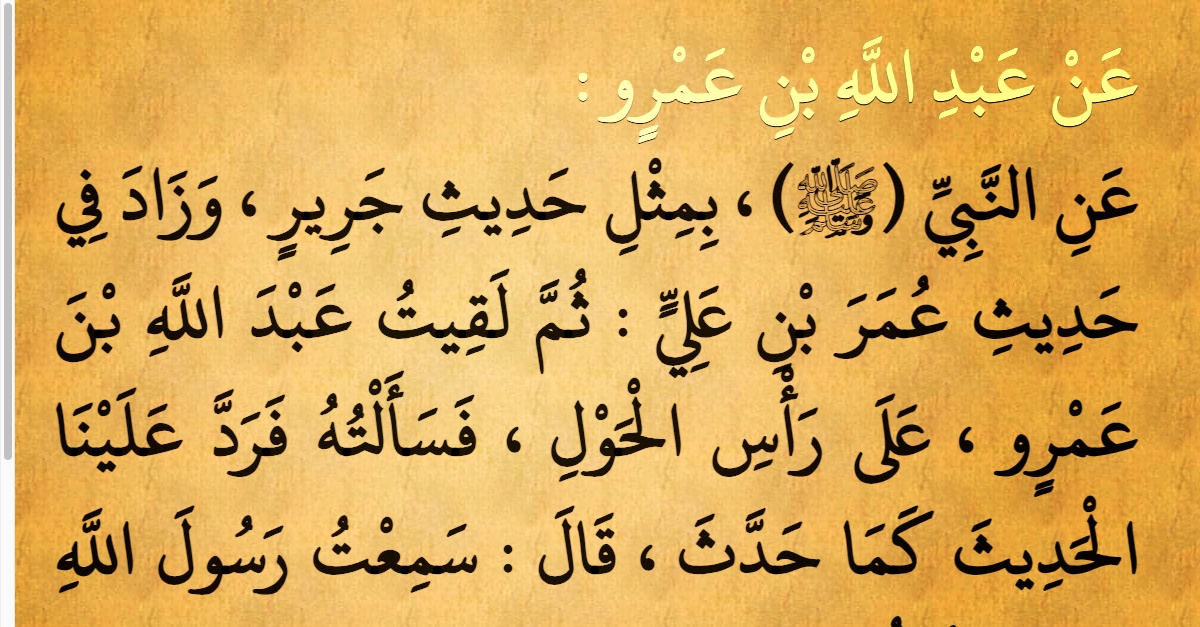 عَنْ عَبْدِ اللَّهِ بْنِ عَمْرٍو :
عَنِ النَّبِيِّ (ﷺ) ، بِمِثْلِ حَدِيثِ جَرِيرٍ ، وَزَادَ فِي
حَدِيثِ عُمَرَ بْنِ عَلِيٍّ : ثُمَّ لَقِيتُ عَبْدَ اللَّهِ بْنَ
عَمْرٍو ، عَلَى رَأْسِ الْحَوْلِ ، فَسَأَلْتُهُ فَرَدَّ عَلَيْنَا
الْحَدِيثَ كَمَا حَدَّثَ ، قَالَ : سَمِعْتُ رَسُولَ اللَّهِ